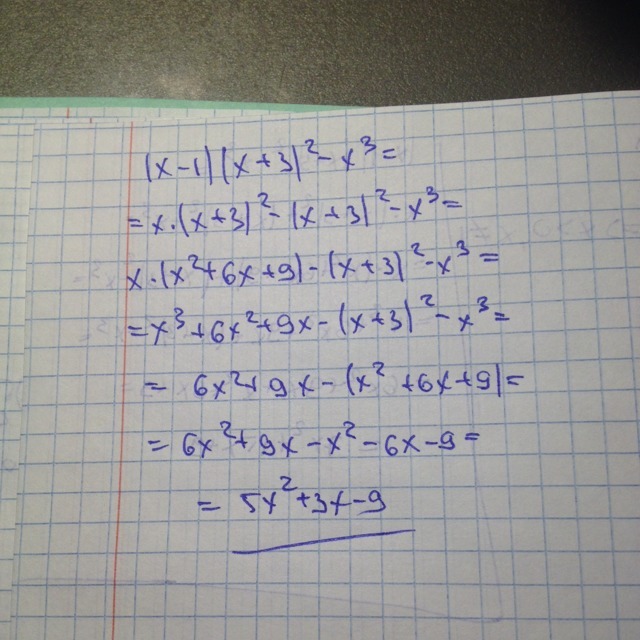 (x-1)(x+3)²-x³=
=x·(x+3)²-(x+3)²-x³=
x·(x²+6x+9)-(x+3)²-x³=
=x³+6x²+9x-(x+3)²-x³=
= 6x²+9x-(x²+6x+9)=
= 6x²+9x-x²-6x-9=
= 5x²+3x-9